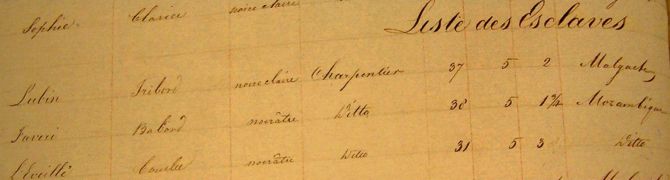 Liste des Esclaves
Sophie Clarice noire claire
Lubin Tribord noire claire Charpentier 37 5 2 Malgache
Babord noirâtre Ditto 38 5 1¾ Mozambique
L'Eveillé noirâtre Ditto 31 5 3 Ditto